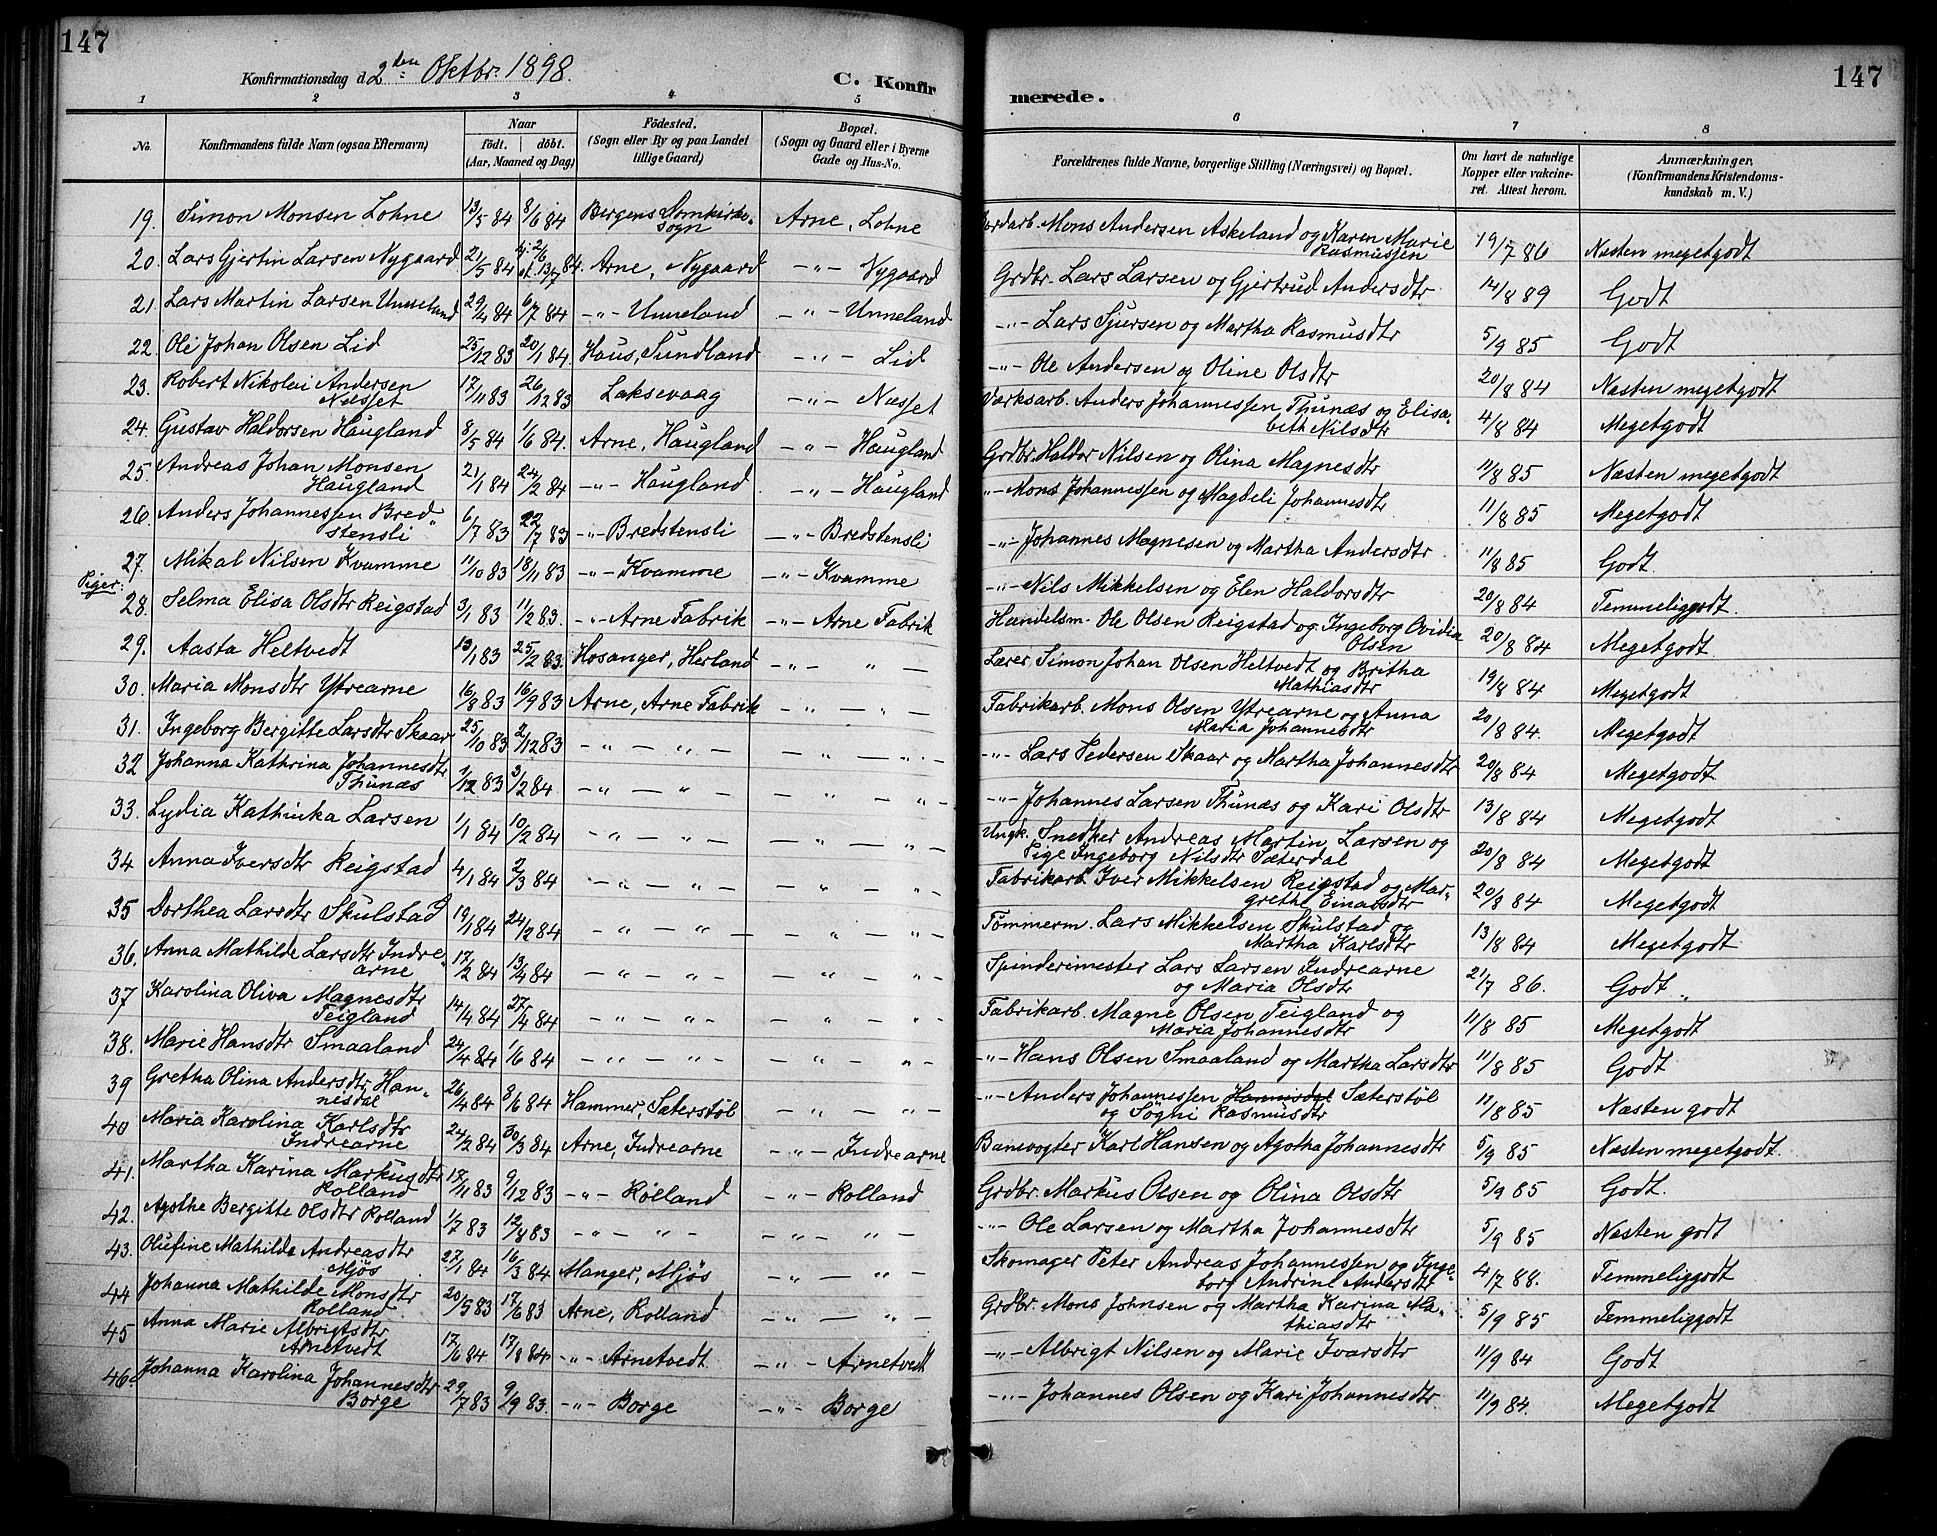 147
Konfirmationsdag d. 2den Oktbr. 1898.
C. Konfirmerede.
147
1 2 3 4 5 6 7 8
No. | Konfirmandens fulde Navn (ogsaa Efternavn) | Naar födt. | döbt. (Aar, Maaned og Dag) | Födested. (Sogn eller By og paa Landet tillige Gaard) | Bopæl. (Sogn og Gaard eller i Byerne Gade og Hus-No. | Forældrenes fulde Navne, borgerlige Stilling (Næringsvei) og Bopæl. | Om havt de naturlige Kopper eller vakcineret. Attest herom. | Anmærkninger. (Konfirmandens Kristendomskundskab m. V.)
19. Simon Monsen Lohne | 13/5 84 | 8/6 84 | Bergens Domkirkesogn | Arne, Lohne | Jordarb. Mons Andersen Askeland og Karen Marie Rasmussen | 19/7 86 | Næsten megetgodt
20. Lars Gjertin Larsen Nygaard | 21/5 84 | 2/6 13/7 84. | Arne, Nygaard | -"- Nygaard | Grdbr. Lars Larsen og Gjertrud Andersdtr | 14/8 89 | Godt
21. Lars Martin Larsen Unneland | 29/4 84 | 6/7 84 | -"- Unneland | -"- Unneland | -"- Lars Sjursen og Martha Rasmusdtr | 5/9 85 | Godt
22. Ole Johan Olsen Lid | 25/12 83 | 20/1 84. | Haus, Sundland | -"- Lid | -"- Ole Andersen og Oline Olsdtr | 20/8 84 | Næsten megetgodt
23. Robert Nikolai Andersen Næsset | 17/11 83 | 26/12 83 | Laksevaag | -"- Næsset | Værksarb. Anders Johannessen Thunæs og Elisabeth Nilsdtr | 4/8 84 | Megetgodt
24. Gustav Haldorsen Haugland | 8/5 84 | 1/6 84. | Arne, Haugland | -"- Haugland | Grdbr. Haldor Nilsen og Olina Magnesdtr | 11/8 85 | Næsten megetgodt
25. Andreas Johan Monsen Haugland | 21/1 84 | 24/2 84 | -"- Haugland | -"- Haugland | -"- Mons Johannessen og Magdeli Johannesdtr | 11/8 85 | Megetgodt
26. Anders Johannessen Bredstensli | 6/7 83 | 22/7 83 | -"- Bredstensli | -"- Bredstensli | -"- Johannes Magnesen og Martha Andersdtr | 11/8 85 | Godt.
27. Mikal Nilsen Kvamme | 11/10 83 | 18/11 83 | -"- Kvamme | -"- Kvamme | -"- Nils Mikkelsen og Elen Haldorsdtr | 20/8 84 | Temmeliggodt.
Piger:
28. Selma Elisa Olsdtr Reigstad | 3/1 83 | 11/2 83. | -"- Arne Fabrik | -"- Arne Fabrik | Handelsm. Ole Olsen Reigstad og Ingeborg Ovidia Olsen | 20/8 84 | Megetgodt.
29. Aasta Heltvedt | 13/1 83 | 25/2 83. | Hosanger, Herland | -"- " - | Lærer Simon Johan Olsen Heltvedt og Britha Mathiasdtr | 19/8 84 | Megetgodt
30. Maria Monsdtr Ytrearne | 16/8 83 | 16/9 83 | Arne, Arne Fabrik | -"- " - | Fabrikarb. Mons Olsen Ytrearne og Anna Maria Johannesdtr | 20/8 84. | Megetgodt
31. Ingeborg Bergitte Larsdtr Skaar | 25/10 83 | 2/12 83 | -"- " - | -"- " - | -"- Lars Pedersen Skaar og Martha Johannesdtr | 20/8 84 | Megetgodt
32 Johanna Kathrina Johannesdtr Thunæs | 1/12 83 | 3/2 84 | -"- " - | -"- " - | -"- Johannes Larsen Thunæs og Kari Olsdtr | 13/8 84 | Megetgodt
33. Lydia Kathinka Larsen | 1/1 84 | 10/2 84 | -"- " - | -"- " - | Ungk. Snedker Andreas Martin Larsen og Pige Ingeborg Nilsdtr Sæterdal | 20/8 84 | Megetgodt
34 Anna Iversdtr Reigstad | 4/1 84 | 2/3 84 | -"- " - | -"- " - | Fabrikarb. Iver Mikkelsen Reigstad og Margrethe Einarsdtr | 20/8 84 | Megetgodt
35 Dorthea Larsdtr Skulstad | 19/1 84 | 24/2 84 | -"- " - | -"- " - | Tömmerm. Lars Mikkelsen Skulstad og Martha Karlsdtr | 13/8 84 | Megetgodt
36. Anna Mathilde Larsdtr Indrearne | 17/2 84 | 13/4 84 | -"- " - | -"- " - | Spinderimester Lars Larsen Indrearne og Maria Olsdtr | 21/7 86. | Godt
37 Karolina Oliva Magnesdtr Teigland | 14/4 84 | 27/4 84 | -"- " - | -"- " - | Fabrikarb. Magne Olsen Teigland og Maria Johannesdtr | 11/8 85 | Megetgodt
38. Marie Hansdtr Smaaland | 24/4 84 | 1/6 84 | -"- " - | -"- " - | -"- Hans Olsen Smaaland og Martha Larsdtr | 11/8 85 | Godt
39 Gretha Olina Andersdtr Hannesdal | 26/4 84 | 8/6 84 | Hammer, Sæterstöl | -"- " - | -"- Anders Johannessen Hannisdal Sæterstöl og Sögni Rasmusdtr | 11/8 85 | Næsten godt
40 Maria Karolina Karlsdtr Indrearne | 24/2 84 | 30/3 84 | Arne, Indrearne | -"- Indrearne | Banevogter Karl Hansen og Agotha Johannesdtr | 5/9 85 | Næsten megetgodt.
41. Martha Karina Markusdtr Rolland | 17/11 83 | 9/12 83 | -"- Rolland | -"- Rolland | Grdbr. Markus Olsen og Olina Olsdtr | 5/9 85 | Godt.
42. Agothe Bergitte Olsdtr Rolland | 1/7 83 | 12/8 83 | -"- " - | -"- " - | -"- Ole Larsen og Martha Johannesdtr | 5/9 85 | Næsten godt
43. Olufine Mathilde Andreasdtr Mjös | 27/1 84 | 16/3 84 | Manger, Mjös | -"- " - | Skomager Peter Andreas Johannessen og Ingeborg Andrine Andersdtr | 4/7 88. | Temmeliggodt
44 Johanna Mathilde Monsdtr Rolland | 20/5 83 | 17/6 83 | Arne, Rolland | -"- " - | Grdbr. Mons Johnsen og Martha Karina Mathiasdtr | 5/9 85 | Temmeliggodt
45 Anna Marie Albrigtsdtr Arnetvedt | 17/6 84 | 17/8 84 | -"- Arnetvedt | -"- Arnetvedt | -"- Albrigt Nilsen og Marie Ivarsdtr | 11/9 84 | Godt
46. Johanna Karolina Johannesdtr Borge | 29/7 83 | 9/9 83. | -"- Borge | -"- Borge | -"- Johannes Olsen og Kari Johannesdtr. | 11/9 84. | Megetgodt